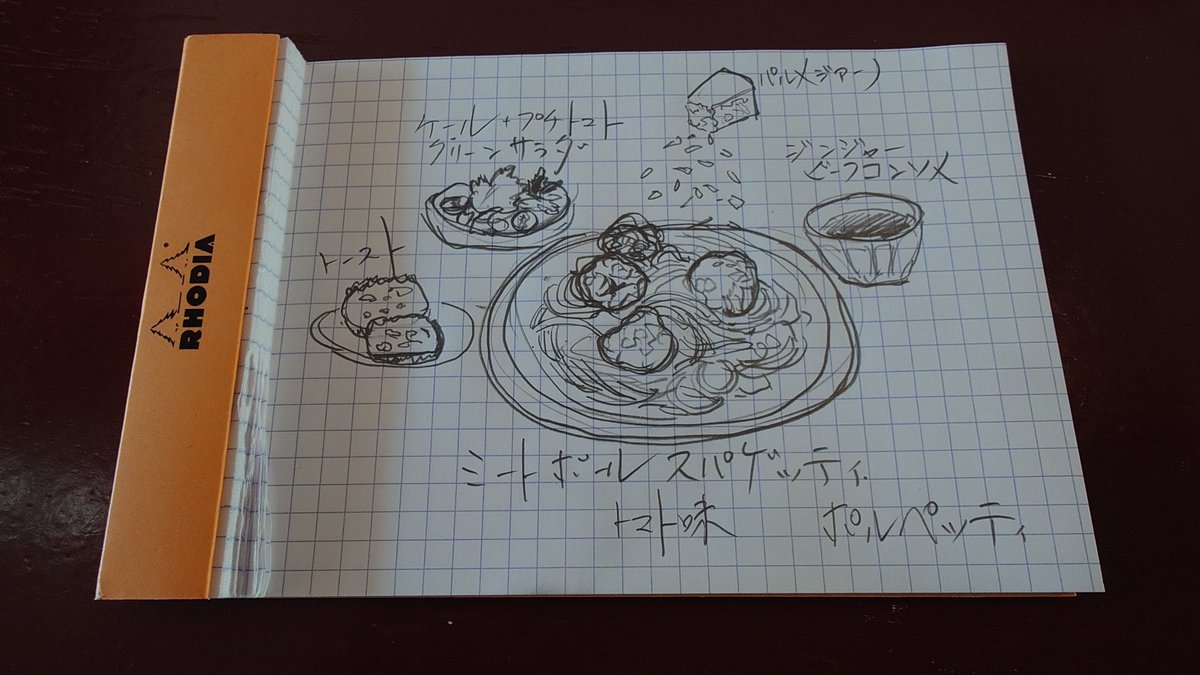 RHODIA
パルメジアーノ
ケール+プチトマト
グリーンサラダ
ジンジャー
ビーフコンソメ
トースト
ミートボールスパゲッティ
トマト味 ポルペッティ